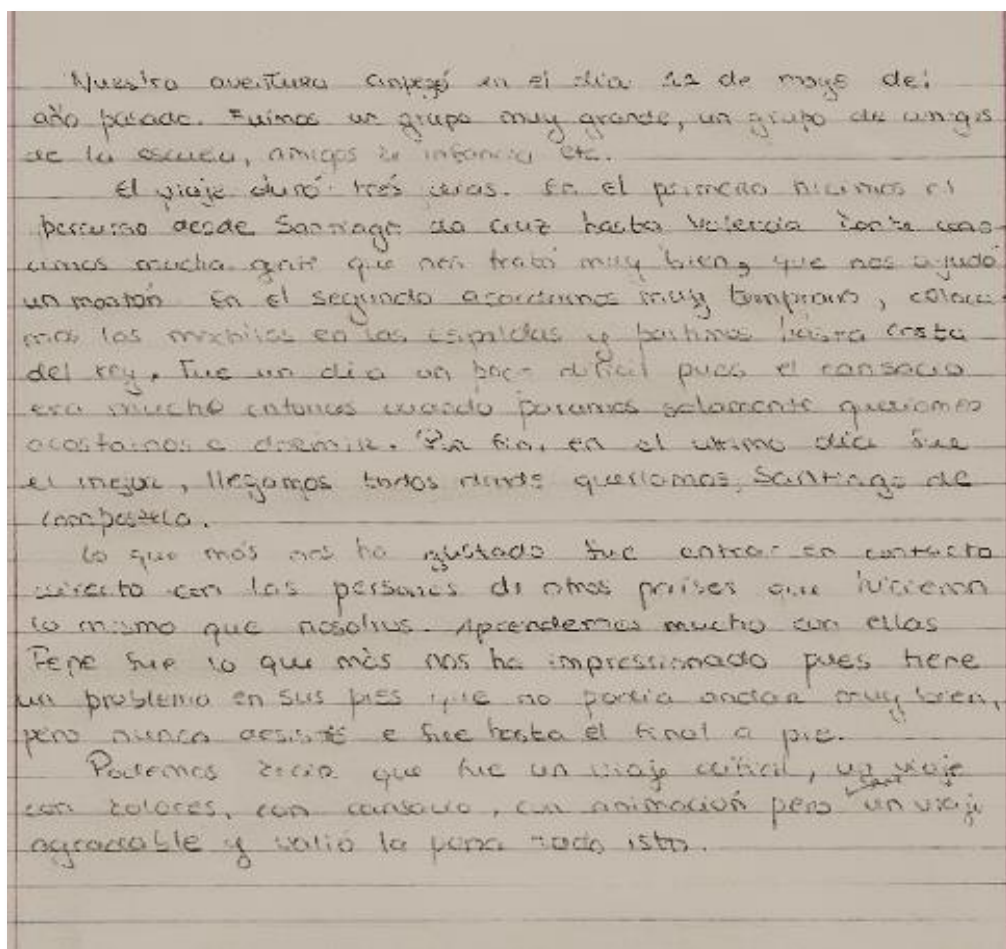 Nuestra aventura empezó en el día 22 de mayo del
año pasado. Fuimos un grupo muy grande, un grupo de amigos
de la escuela, amigos de infancia etc.
El viaje duró tres días. En el primero hicimos el
percurso desde Santiago da Cruz hasta Valencia donde
mucha gente que nos trató muy bien, que nos ayudó
un montón. En el segundo acordamos muy temprano, coloca-
mos las mochilas en las espaldas y partimos hasta Costa
del rey. Fue un día un poco dificil pues el cansacio
era mucho entonces cuando paramos solamente queriamos
acostarnos e dormir. Por fin, en el ultimo día fue
el mejor, llegamos todos donde queriamos, Santiago de
Compostela.
Lo que más nos ha gustado fue entrar en contacto
directo con las personas de otros países que hicieron
lo mismo que nosotros. Aprendemos mucho con ellas
Pepe fue lo que más nos ha impressionado pues tiene
un problema en sus pies que no podia andar muy bien,
pero nunca desisté e fue hasta el final a pie.
Podemos decir que fue un viaje dificil, un viaje
con dolores, con cansacio, con animación pero un viaje
agradable y valió la pena todo isto.